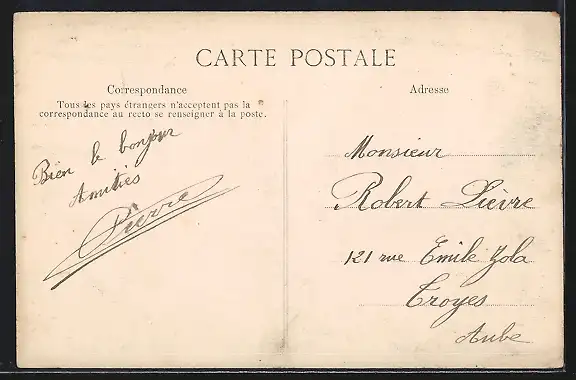 CARTE POSTALE
Correspondance
Tous les pays étrangers n'acceptent pas la
correspondance au recto se renseigner à la poste.
Bien le bonjour
Amitiés
Pierre
Adresse
Monsieur
Robert Lièvre
121 rue Emile Zola
Troyes
Aube